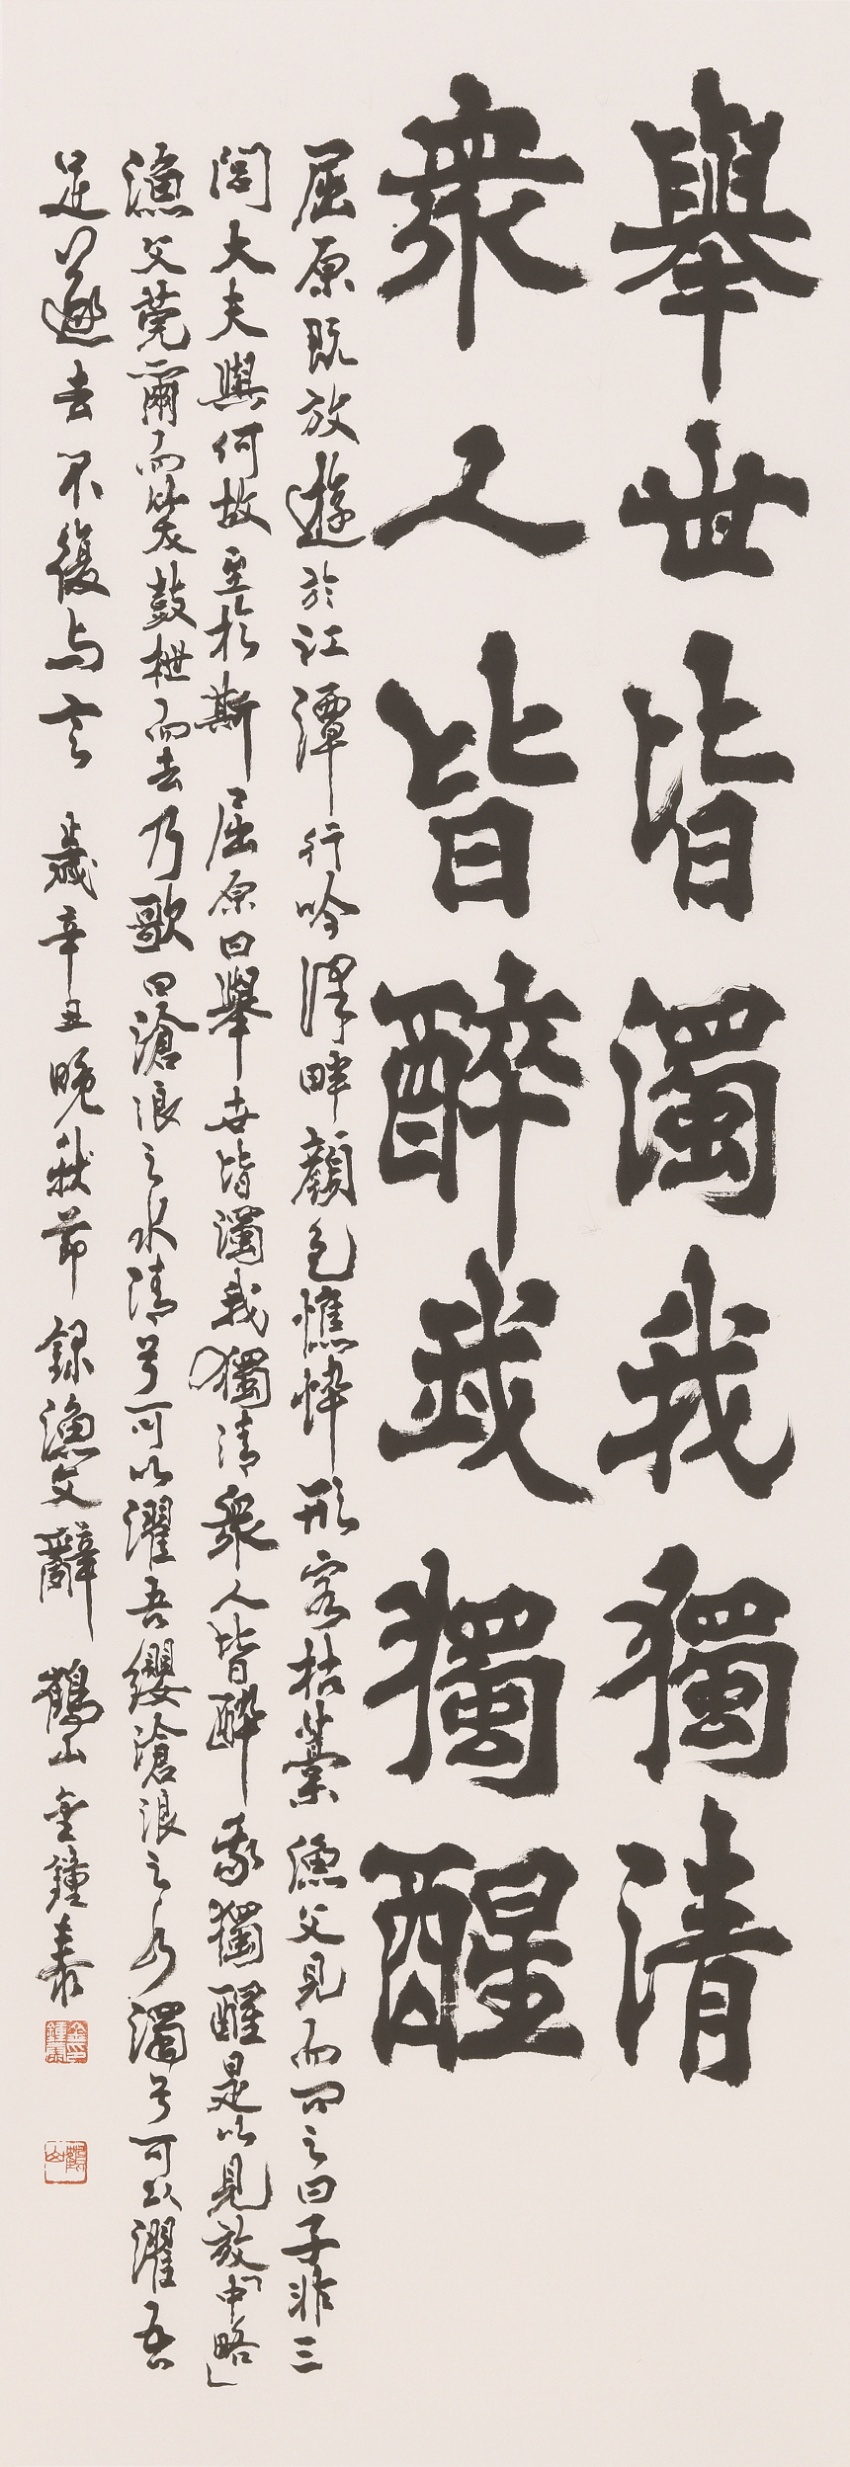 舉世皆濁我獨清
衆人皆醉我獨醒
屈原既放遊於江潭行吟澤畔顏色憔悴形容枯藁漁父見而問之曰子非三
閭大夫與何故至於斯屈原曰舉世皆濁我獨清衆人皆醉我獨醒是以見放「中略」
漁父莞爾而笑鼓枻而去乃歌曰滄浪之水清兮可以濯吾纓滄浪之水濁兮可以濯吾
足遂去不復与言 歲辛丑晚秋節 錄漁父辭 鶴山金鐘泰